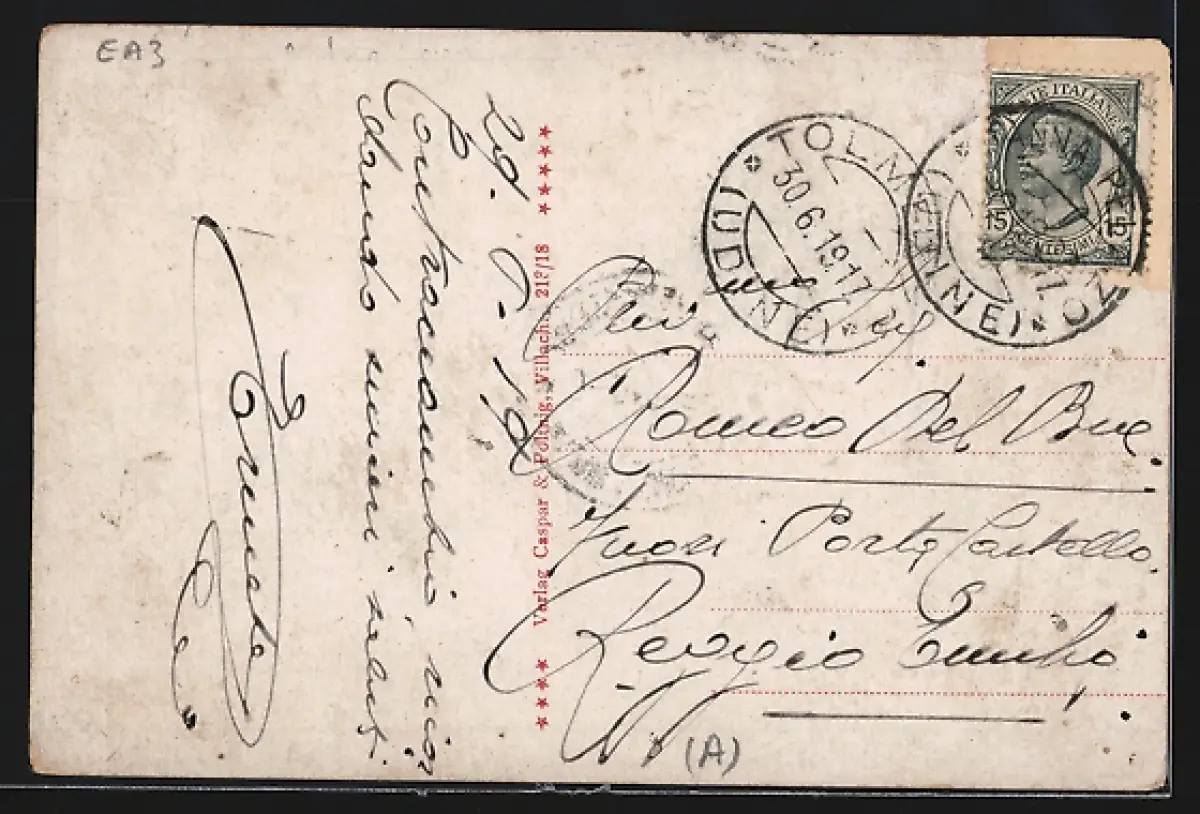 EA3
29. 6. 17
Contraccambio, mior
dando sinceri saluti
Ernesto
Verlag Caspar & Poltnig, Villach. 218/18
TOLMEZZO
(UDINE)
30.6.1917
POSTE ITALIANE
15
CENTESIMI 15
Romeo Del Bue.
Fuori Porta Castello.
Reggio Emilia
(A)